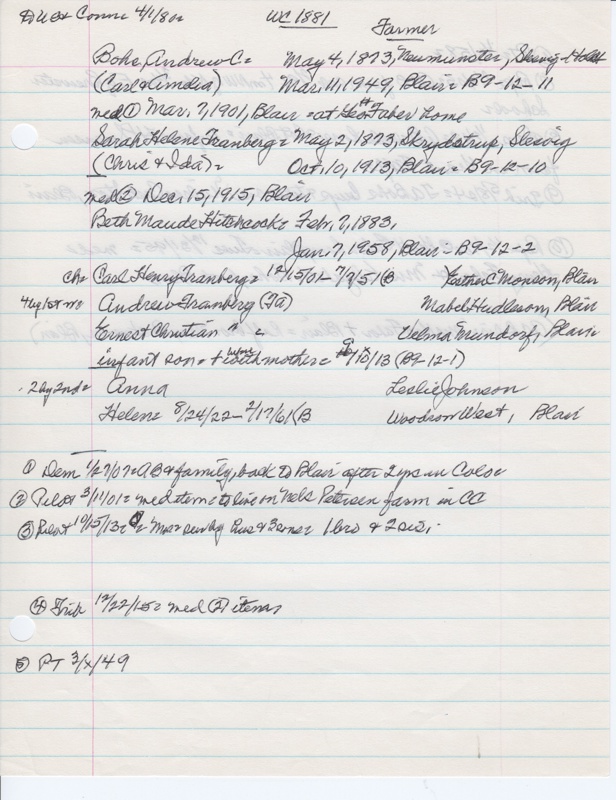 4/1/80 WC 1881
Farmer
Bohs, Andrew C = May 4, 1873, Neumunster, Slesvig-Holst
(Carl & Amelia) Mar. 11, 1949, Blair = B9-12-11
med ① Mar. 7, 1901, Blair = at Geo Faber home
Sarah Helene Tranberg = May 2, 1873, Skrydstrup, Slesvig
(Chris & Ida) = Oct. 10, 1913, Blair = B9-12-10
med ② Dec. 15, 1915, Blair
Beth Maude Hitchcock = Feb. 7, 1883,
Jan. 7, 1958, Blair = B9-12-2
ch = Carl Henry Tranberg = 12/15/01- 7/9/51 (B Esther C Monson, Blair
4 by 1st m = Andrew Tranberg (Ta) Mabel Hudleson, Blair
Ernest Christian " = Velma Mundorf, Blair
infant son = + w/ mother = 9/10/13 (B9-12-1)
2 by 2nd = Anna Leslie Johnson
Helen = 8/24/22- 2/17/61 (B Woodson West, Blair
① Dem 1/27/07 = AB & family, back to Blair after 2 yrs in Colo
② Pilot 3/11/01 = med item = to live on Nels Petersen farm in CC
③ Pilot 10/15/13 = Mrs surv by hus & 3 sons = 1 bro & 2 sis.
④ Trib 12/22/15 = med ② item
⑤ PT 3/x/49